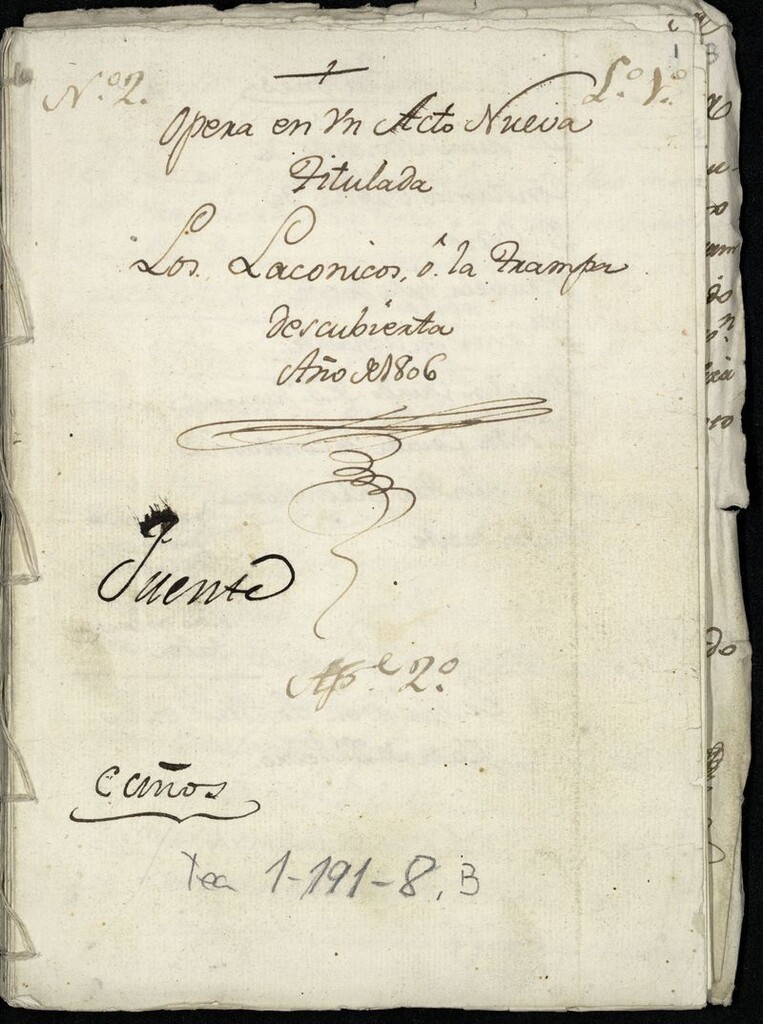 N.º 2.
L.º V.º
Opera en Vn Acto Nueva
Titulada
Los. Laconicos, ô. la Trampa
descubierta
Año de 1806
Puente
Ap.e 2.º
Caños
Tea 1-191-8, B